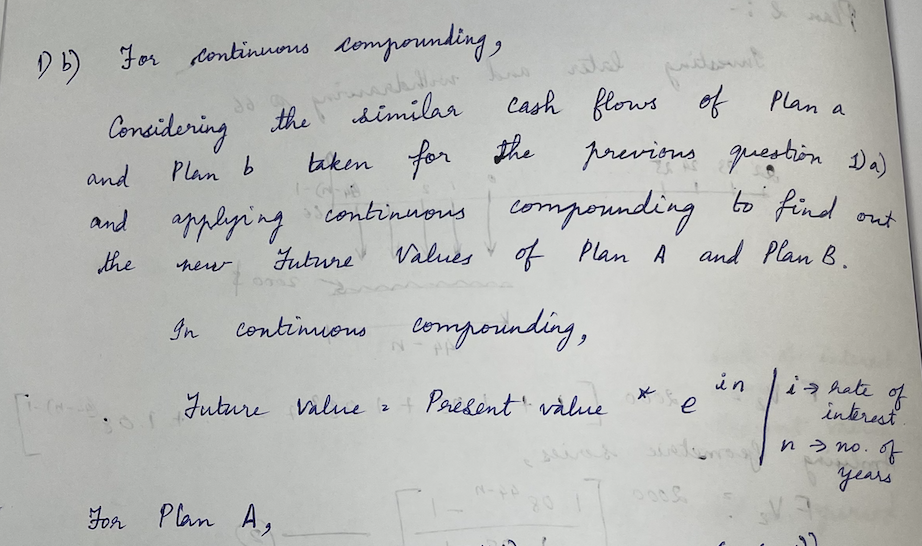 1) b) For continuous compounding,
Considering the similar cash flows of Plan a
and Plan b taken for the previous question 1) a)
and applying continuous compounding to find out
the new Future Values of Plan A and Plan B.
In continuous compounding,
Future value = Present value * e^in | i → rate of interest
n → no. of years
For Plan A,